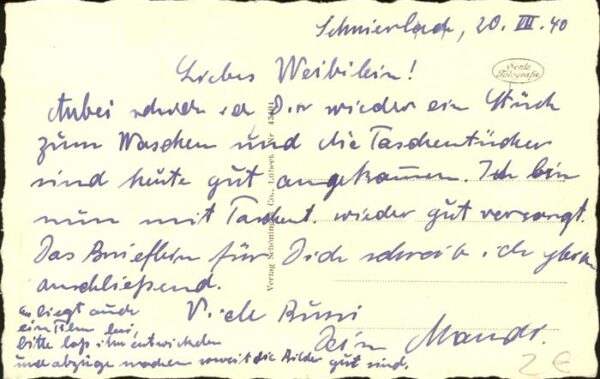 Schnierlach, 20. VII. 40
Echte Fotografie
Liebes Weibilein!
Anbei schicke ich Dir wieder ein Stück
zum Waschen und die Taschentücher
sind heute gut angekommen. Ich bin
nun mit Taschent. wieder gut versorgt.
Das Brieflein für Dich schreib ich gleich
anschließend.
Viele Bussi
Dein Mandi.
es liegt auch
ein Film bei,
bitte laß ihn entwickeln
und abzüge machen soweit die Bilder gut sind.
Verlag Schöning & Co., Lübeck Nr.
2€